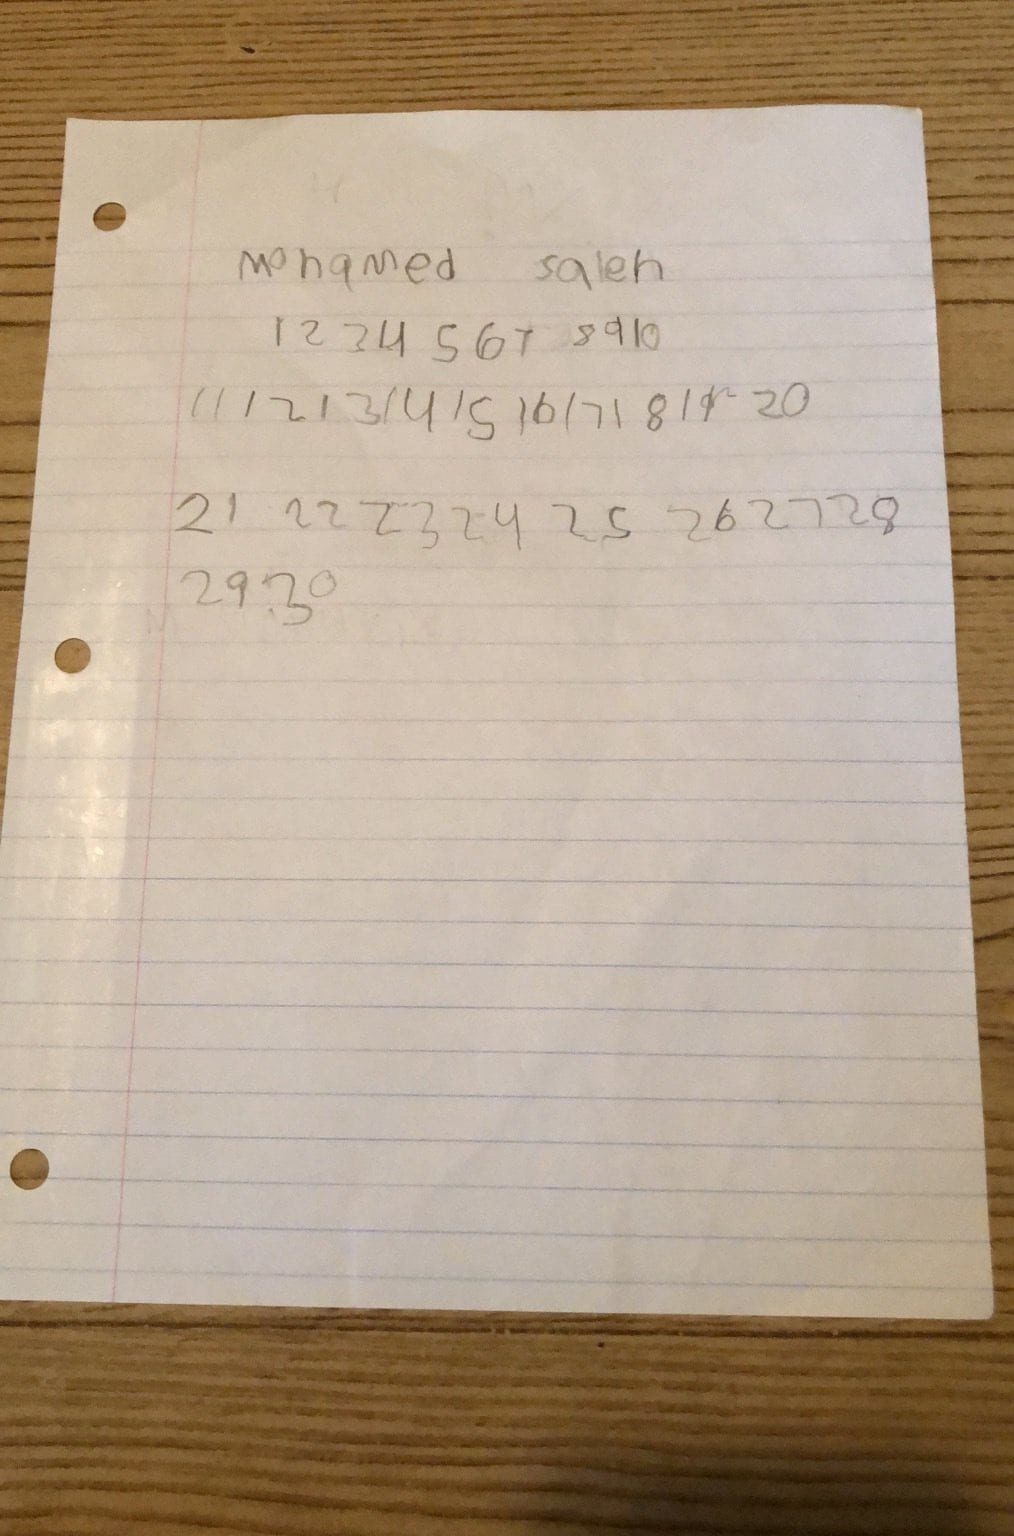 Mohamed saleh
1 2 3 4 5 6 7 8 9 10
11 12 13 14 15 16 17 18 19 20
21 22 23 24 25 26 27 28
29 30